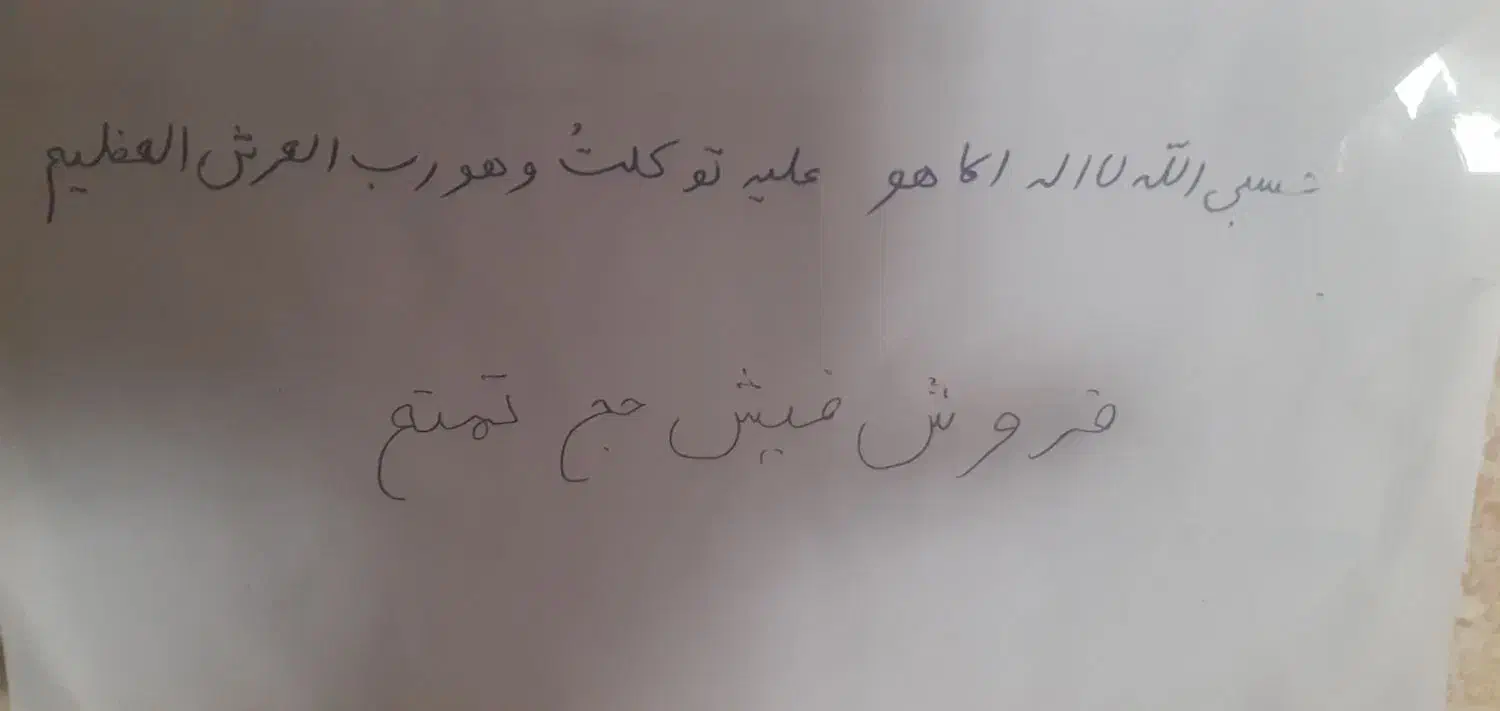 حسبی اللّه لا اله الا هو علیه توکلتُ وهو رب العرش العظیم
فروش فیش حج تمتع